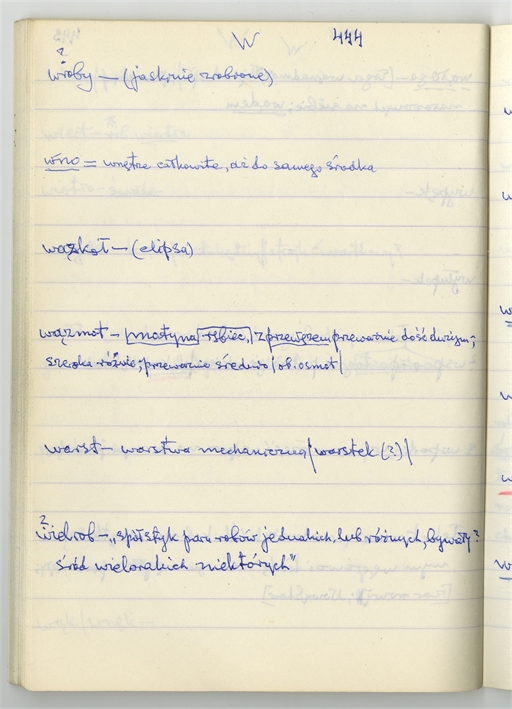 W 444
?
wroby — (jaskinie zrobione)
wno = wnętrze całkowite, aż do samego środka
wązkoł — (elipsa)
wązmot — |mastyna| |rsbiec,| z przewęzem przeważnie dość dużym;
szeroka różnie; przeważnie średnio | ob. osmot |
warst — warstwa mechaniczna | warstek (?) |
?
wielrob — „spólstyk paru robów jednakich, lub różnych, bywały ?
śród wielorakich niektórych"